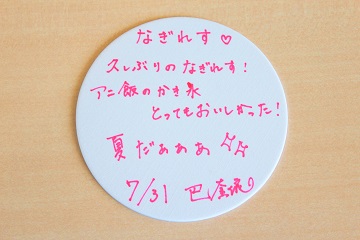 なぎれす♡
久しぶりのなぎれす!
アニ飯のかき氷
とってもおいしかった!
夏だぁぁぁ
7/31 巴